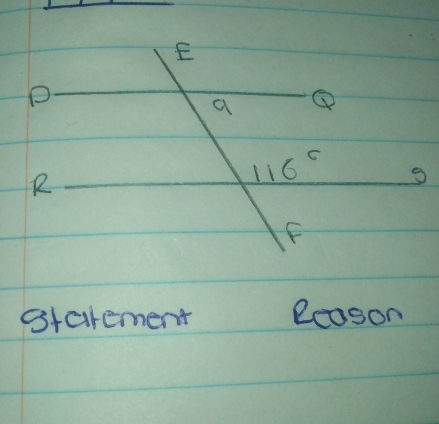 E
P Q
a
116°
R S
F
Statement Reason